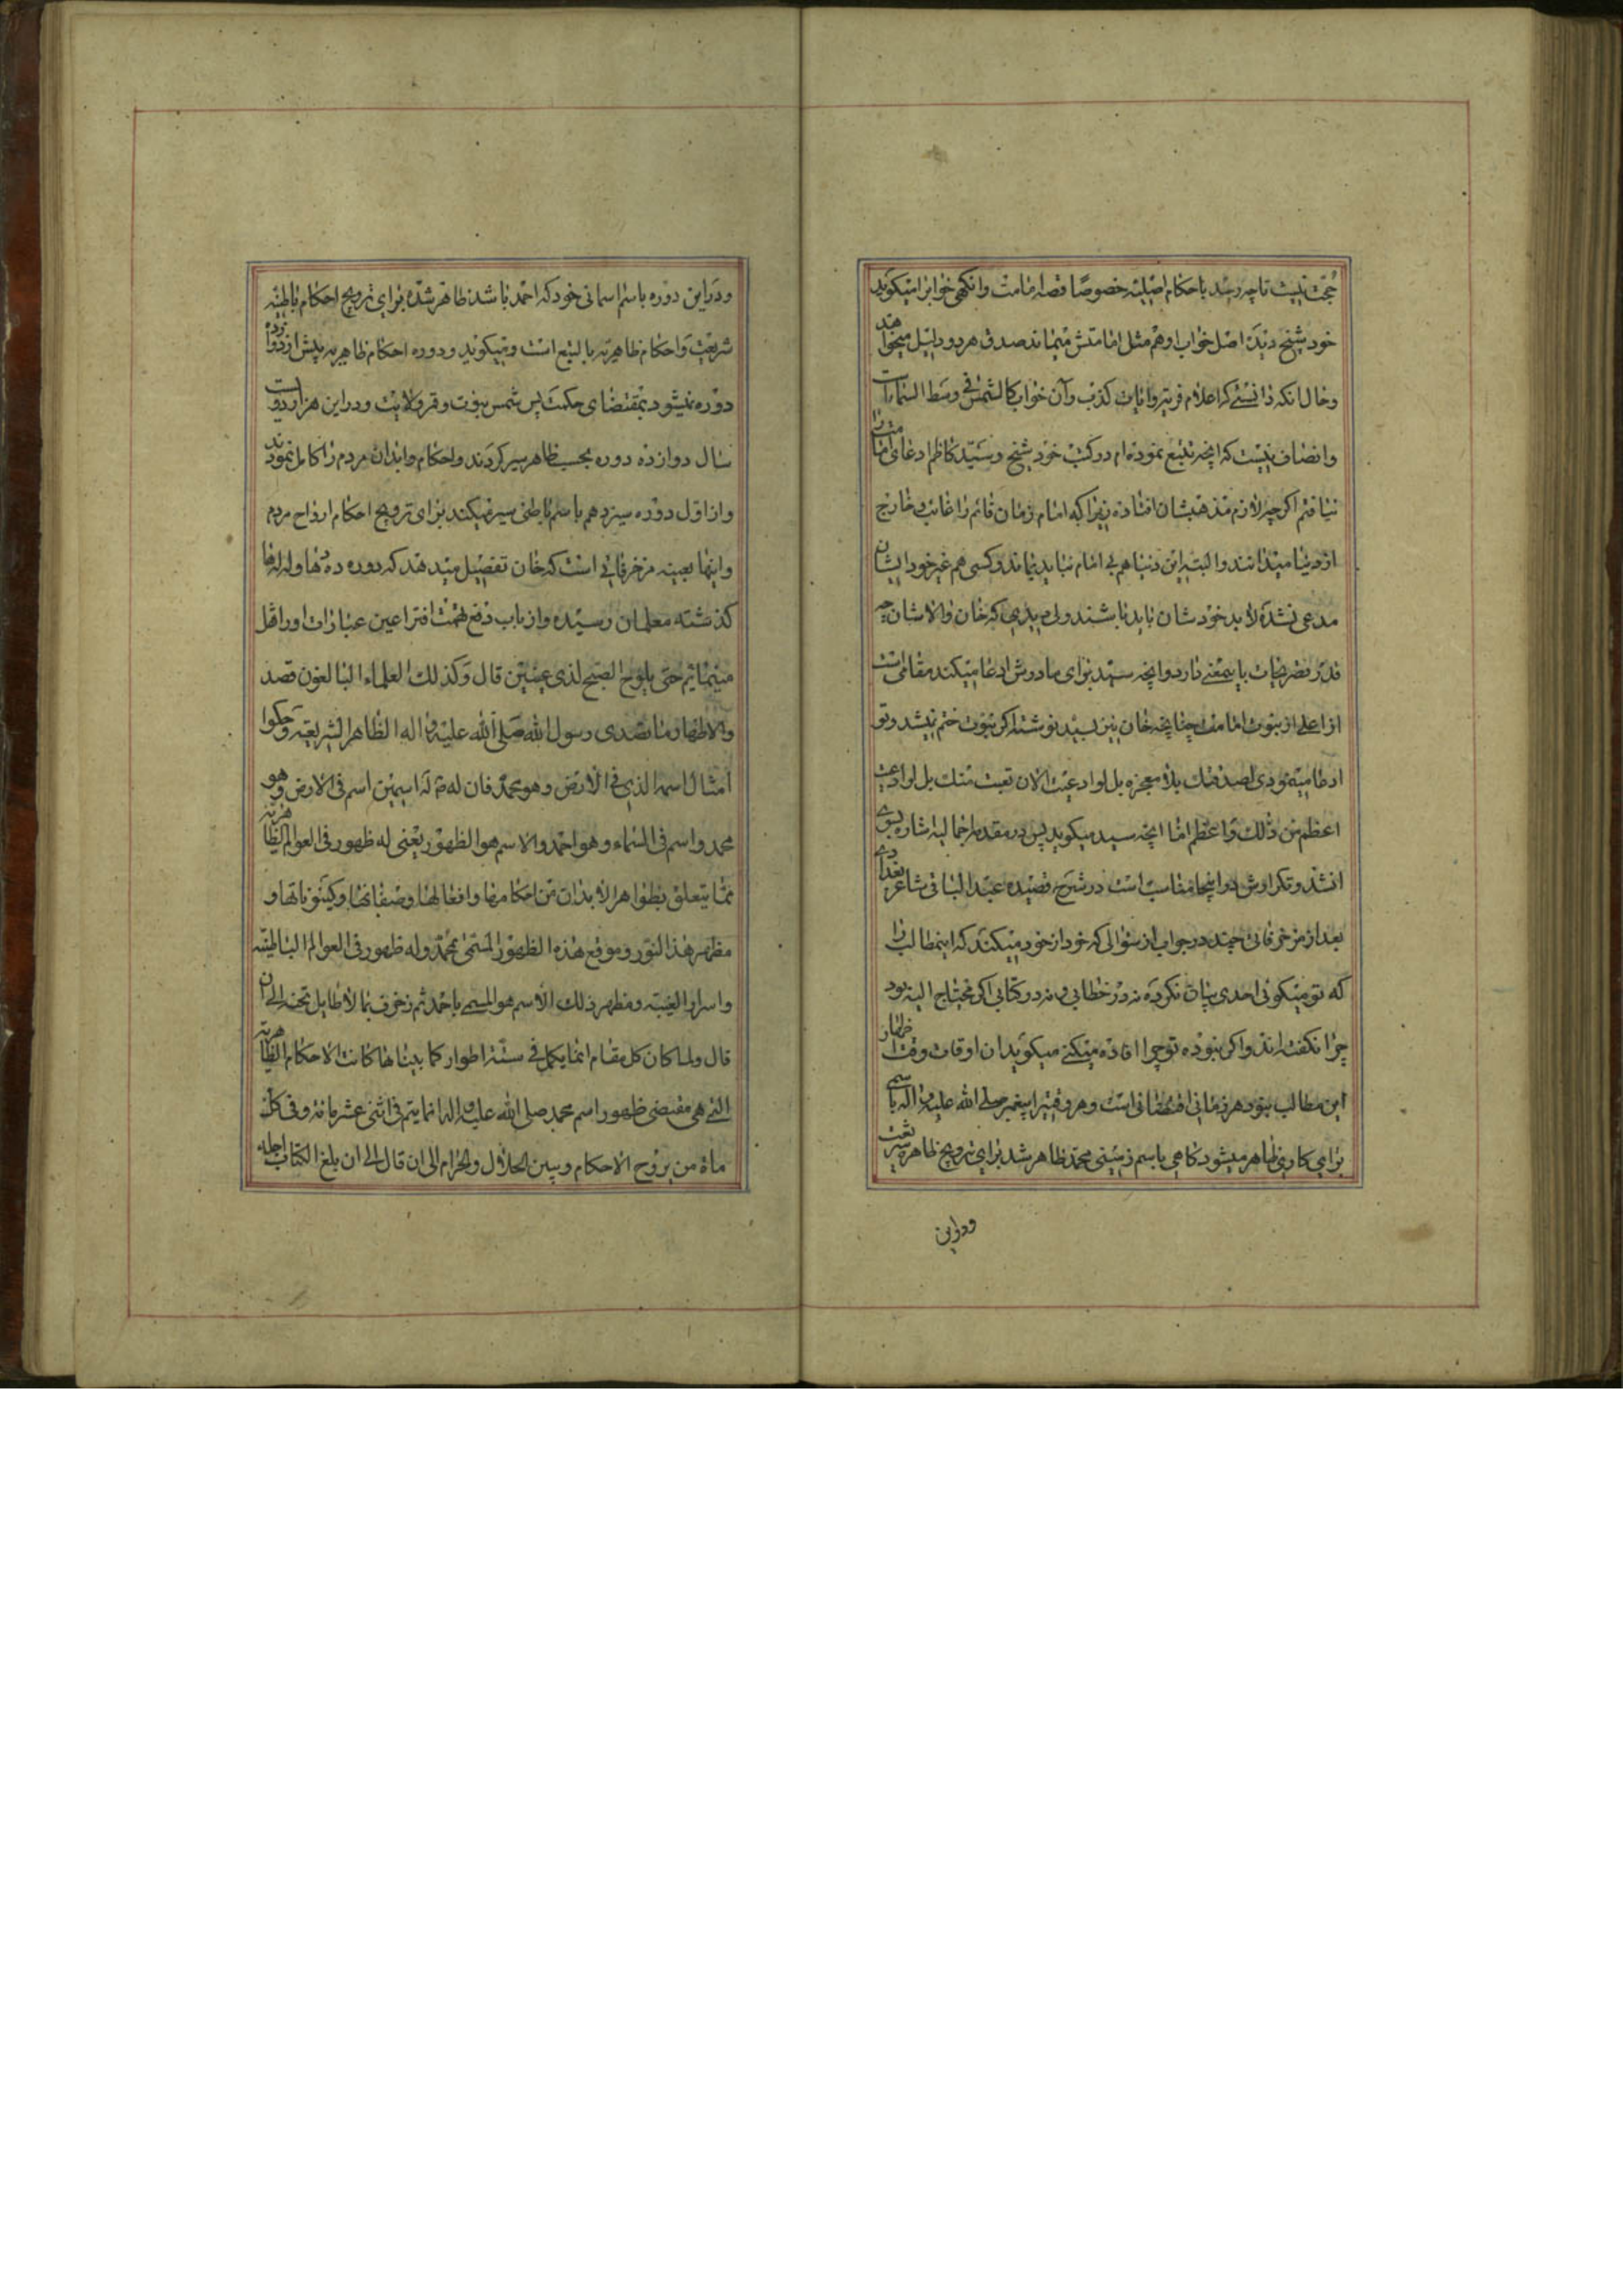 حجت نیست تا چه رسد باحکام اصلیه خصوصا قصه امامت وانکهی خوابرا میکوید
خود شیخ دیده اصل خواب او هم مثل امامتش میماند صدق هر دو دلیل میخواهد
وحال انکه دانستی که اعلام فریه وایات کذب وآن خواب کالشمس فی وسط السماء است
وانصاف نیست که انچه تتبع نموده ام در کتب خود شیخ وسید کاظم ادعای امامت را
نیافتم اکرچه لازم مذهبشان افتاده زیرا که امام زمان قائم را غائب وخارج
از دنیا میدانند والبته این دنیا هم بی امام نباید بماند وکسی هم غیر خود ایشان
مدعی نشده لابد خودشان باید باشند ولی میدیدی که خان والاشان چه
قدر تصریحات باینمعنی دارد وانچه سید برای مادوش ادعا میکند مقامی است
از اعلی از نبوت امامت چنانچه خان نیز بسید نوشته اکر نبوت ختم نیشد وتو
ادعا مینمودی لصدقتک بلا معجزه بل لو ادعیت الان تعبت منک بل لو ادعیت
اعظم من ذلک واعظم اما انچه سید میکوید پس در مقدمه اجمالیه اشاره بسوی
انشد وتکرارش در اینجا مناسب است در شرح قصیده عبد الباقی شاعر بغدادی
بعد از مزخرفاتی چند در جواب از سؤالی که خود از خود میکند که اینمطالب را
که تو میکوئی احدی بیان نکرده نه در خطابی و نه در کتابی اکر محتاج الیه بود
چرا نکفته اند واکر نبوده تو چرا افاده میکنی میکوید ان اوقات وقت اظهار
این مطالب نبود هر زمانی اقتضائی است وهر وقتی را پیغمبر صلی الله علیه واله باسمی
برای کاری ظاهر میشود کاهی باسم زمینی محمد ظاهر شد برای ترویج ظاهر شریعت
ودراین
ودراین دوره باسم اسمانی خود که احمد باشد ظاهر شده برای ترویج احکام باطنیه
شریعت واحکام ظاهریه بالتبع است ومیکوید ودوره احکام ظاهریه بیش از دوازده
دوره نمیشود بمقتضای حکمت پس شمس نبوت وقمر ولایت ودر این هزار ودویست
سال دوازده دوره بحسب ظاهر سیر کردند واحکام وابدان مردم را کامل نمودند
واز اول دوره سیزدهم باسم باطنی سیر میکند برای ترویج احکام ارواح مردم
واینها بعینه مزخرفاتی است که خان تفصیل میدهد که دوره ده نها و لدلدها
کذشته معلمان رسیده واز باب دفع تهمت افترا عین عبارات او را نقل
مینمائیم حتی یلوح الصبح لذی عینین قال وکذلک العلماء البالغون قصد
والاظهار ما تصدی رسول الله صلی الله علیه و اله الظاهر الشریعة وحکوا
امثال اسمه الذی فی الارض وهو محمد فان له ص له اسمین اسم فی الارض وهو
محمد واسم فی السماء وهو احمد والاسم هو الظهور یعنی له ظهور فی العوالم الظاهریة
مما یتعلق بظواهر الابدان من احکامها وافعالها وصفاتها وکینوناتها و
مظهر هذا النور وموقع هذه الظهور المسمی بمحمد وله ظهور فی العوالم الباطنیة
واسرار الغیبیه ومظهر ذلک الاسم هو المسمی باحمد ثم زخرف بما لا طایل تحته الی ان
قال ولما کان کل مقام انما یکمل فی ستة اطوار کما بیناها کانت الاحکام الظاهریة
التی هی مقتضی ظهور اسم محمد صلی الله علیه واله انما یتم فی اثنی عشر مائة وفی کل
مأة من یروج الاحکام ویبین الحلال والحرام الی ان قال الی ان بلغ الکتاب اجله